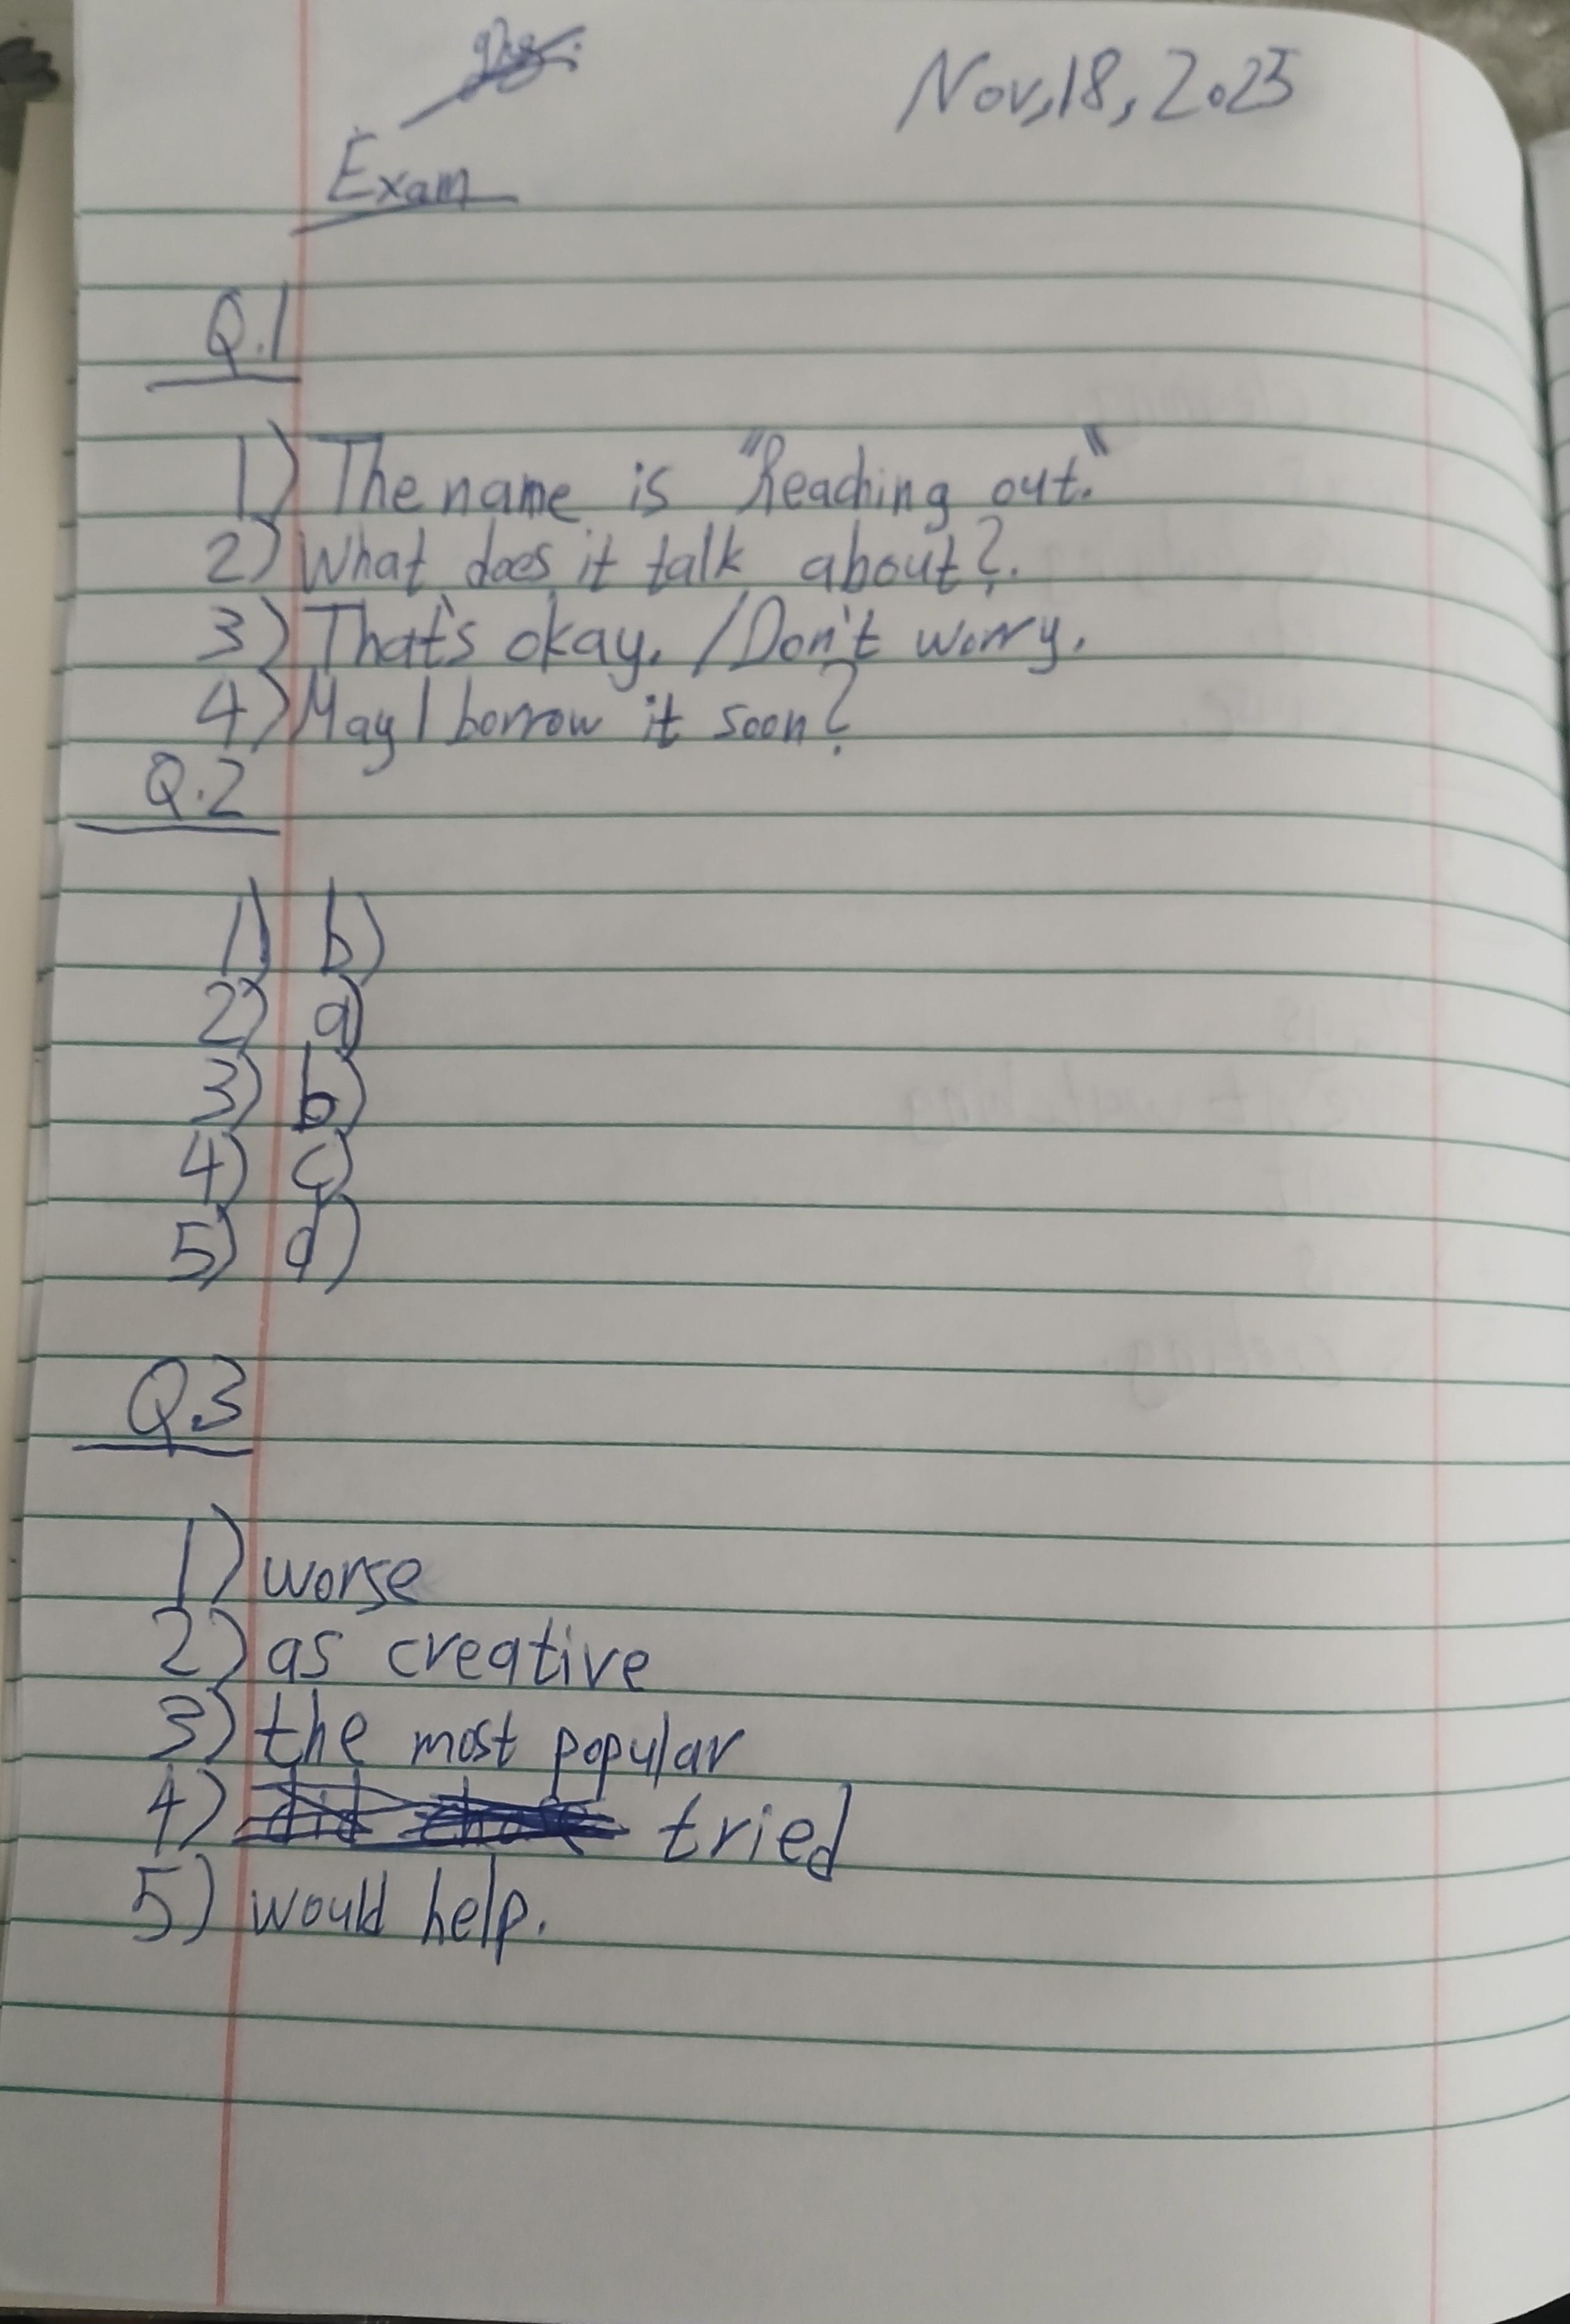 Nov,18, 2025
Exam
Q.1
1) The name is "Reaching out."
2) What does it talk about?.
3) That's okay. /Don't worry.
4) May I borrow it soon?
Q.2
1) b)
2) a)
3) b)
4) c)
5) d)
Q.3
1) worse
2) as creative
3) the most popular
4) tried
5) would help.